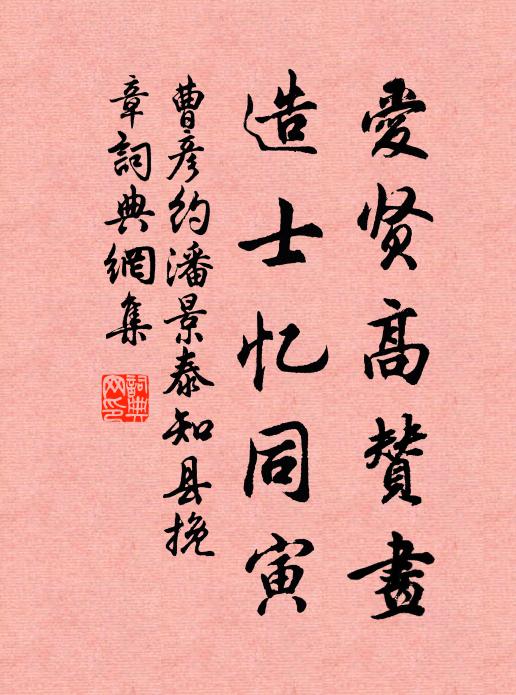 愛贤高赞畫
造士忆同寅
曹彦约潘景泰知县挽
章詞典網集
詞典網印